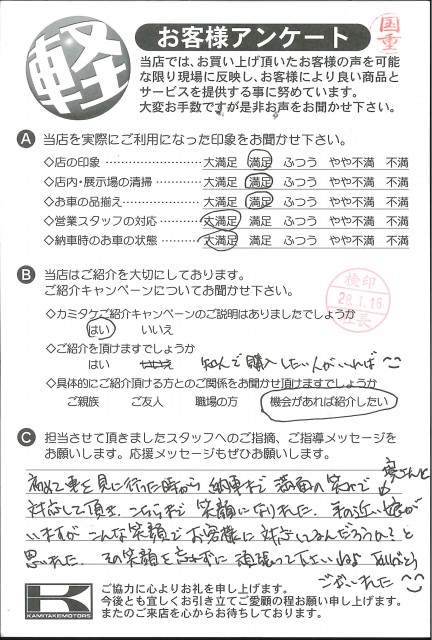 軽
お客様アンケート
国重
当店では、お買い上げ頂いたお客様の声を可能
な限り現場に反映し、お客様により良い商品と
サービスを提供する事に努めています。
大変お手数ですが是非お声をお聞かせ下さい。
A 当店を実際にご利用になった印象をお聞かせ下さい。
◇店の印象 大満足 満足 ふつう やや不満 不満
◇店内・展示場の清掃 大満足 満足 ふつう やや不満 不満
◇お車の品揃え 大満足 満足 ふつう やや不満 不満
◇営業スタッフの対応 大満足 満足 ふつう やや不満 不満
◇納車時のお車の状態 大満足 満足 ふつう やや不満 不満
B 当店はご紹介を大切にしております。
ご紹介キャンペーンについてお聞かせ下さい。
検印
28.1.16
社長
◇カミタケご紹介キャンペーンのご説明はありましたでしょうか
はい いいえ
◇ご紹介を頂けますでしょうか
はい いいえ 知人で購入したい人がいれば
◇具体的にご紹介頂ける方とのご関係をお聞かせ頂けますでしょうか
ご親族 ご友人 職場の方 機会があれば紹介したい
C 担当させて頂きましたスタッフへのご指摘、ご指導メッセージを
お願いします。応援メッセージもぜひお願いします。
初めて車を見に行った時から 納車まで 満面の笑みで
対応して頂き、こちらまで 笑顔になりました。年の近い娘が
いますが こんな笑顔で お客様に 対応しているんだろうか?と
思いました。その笑顔を忘れずに 頑張って下さいねよ ありがとう
ございました
K
KAMITAKEMOTORS
ご協力に心よりお礼を申し上げます。
今後とも宜しくお引き立てご愛顧の程お願い申し上げます。
またのご来店を心からお待ちしております。